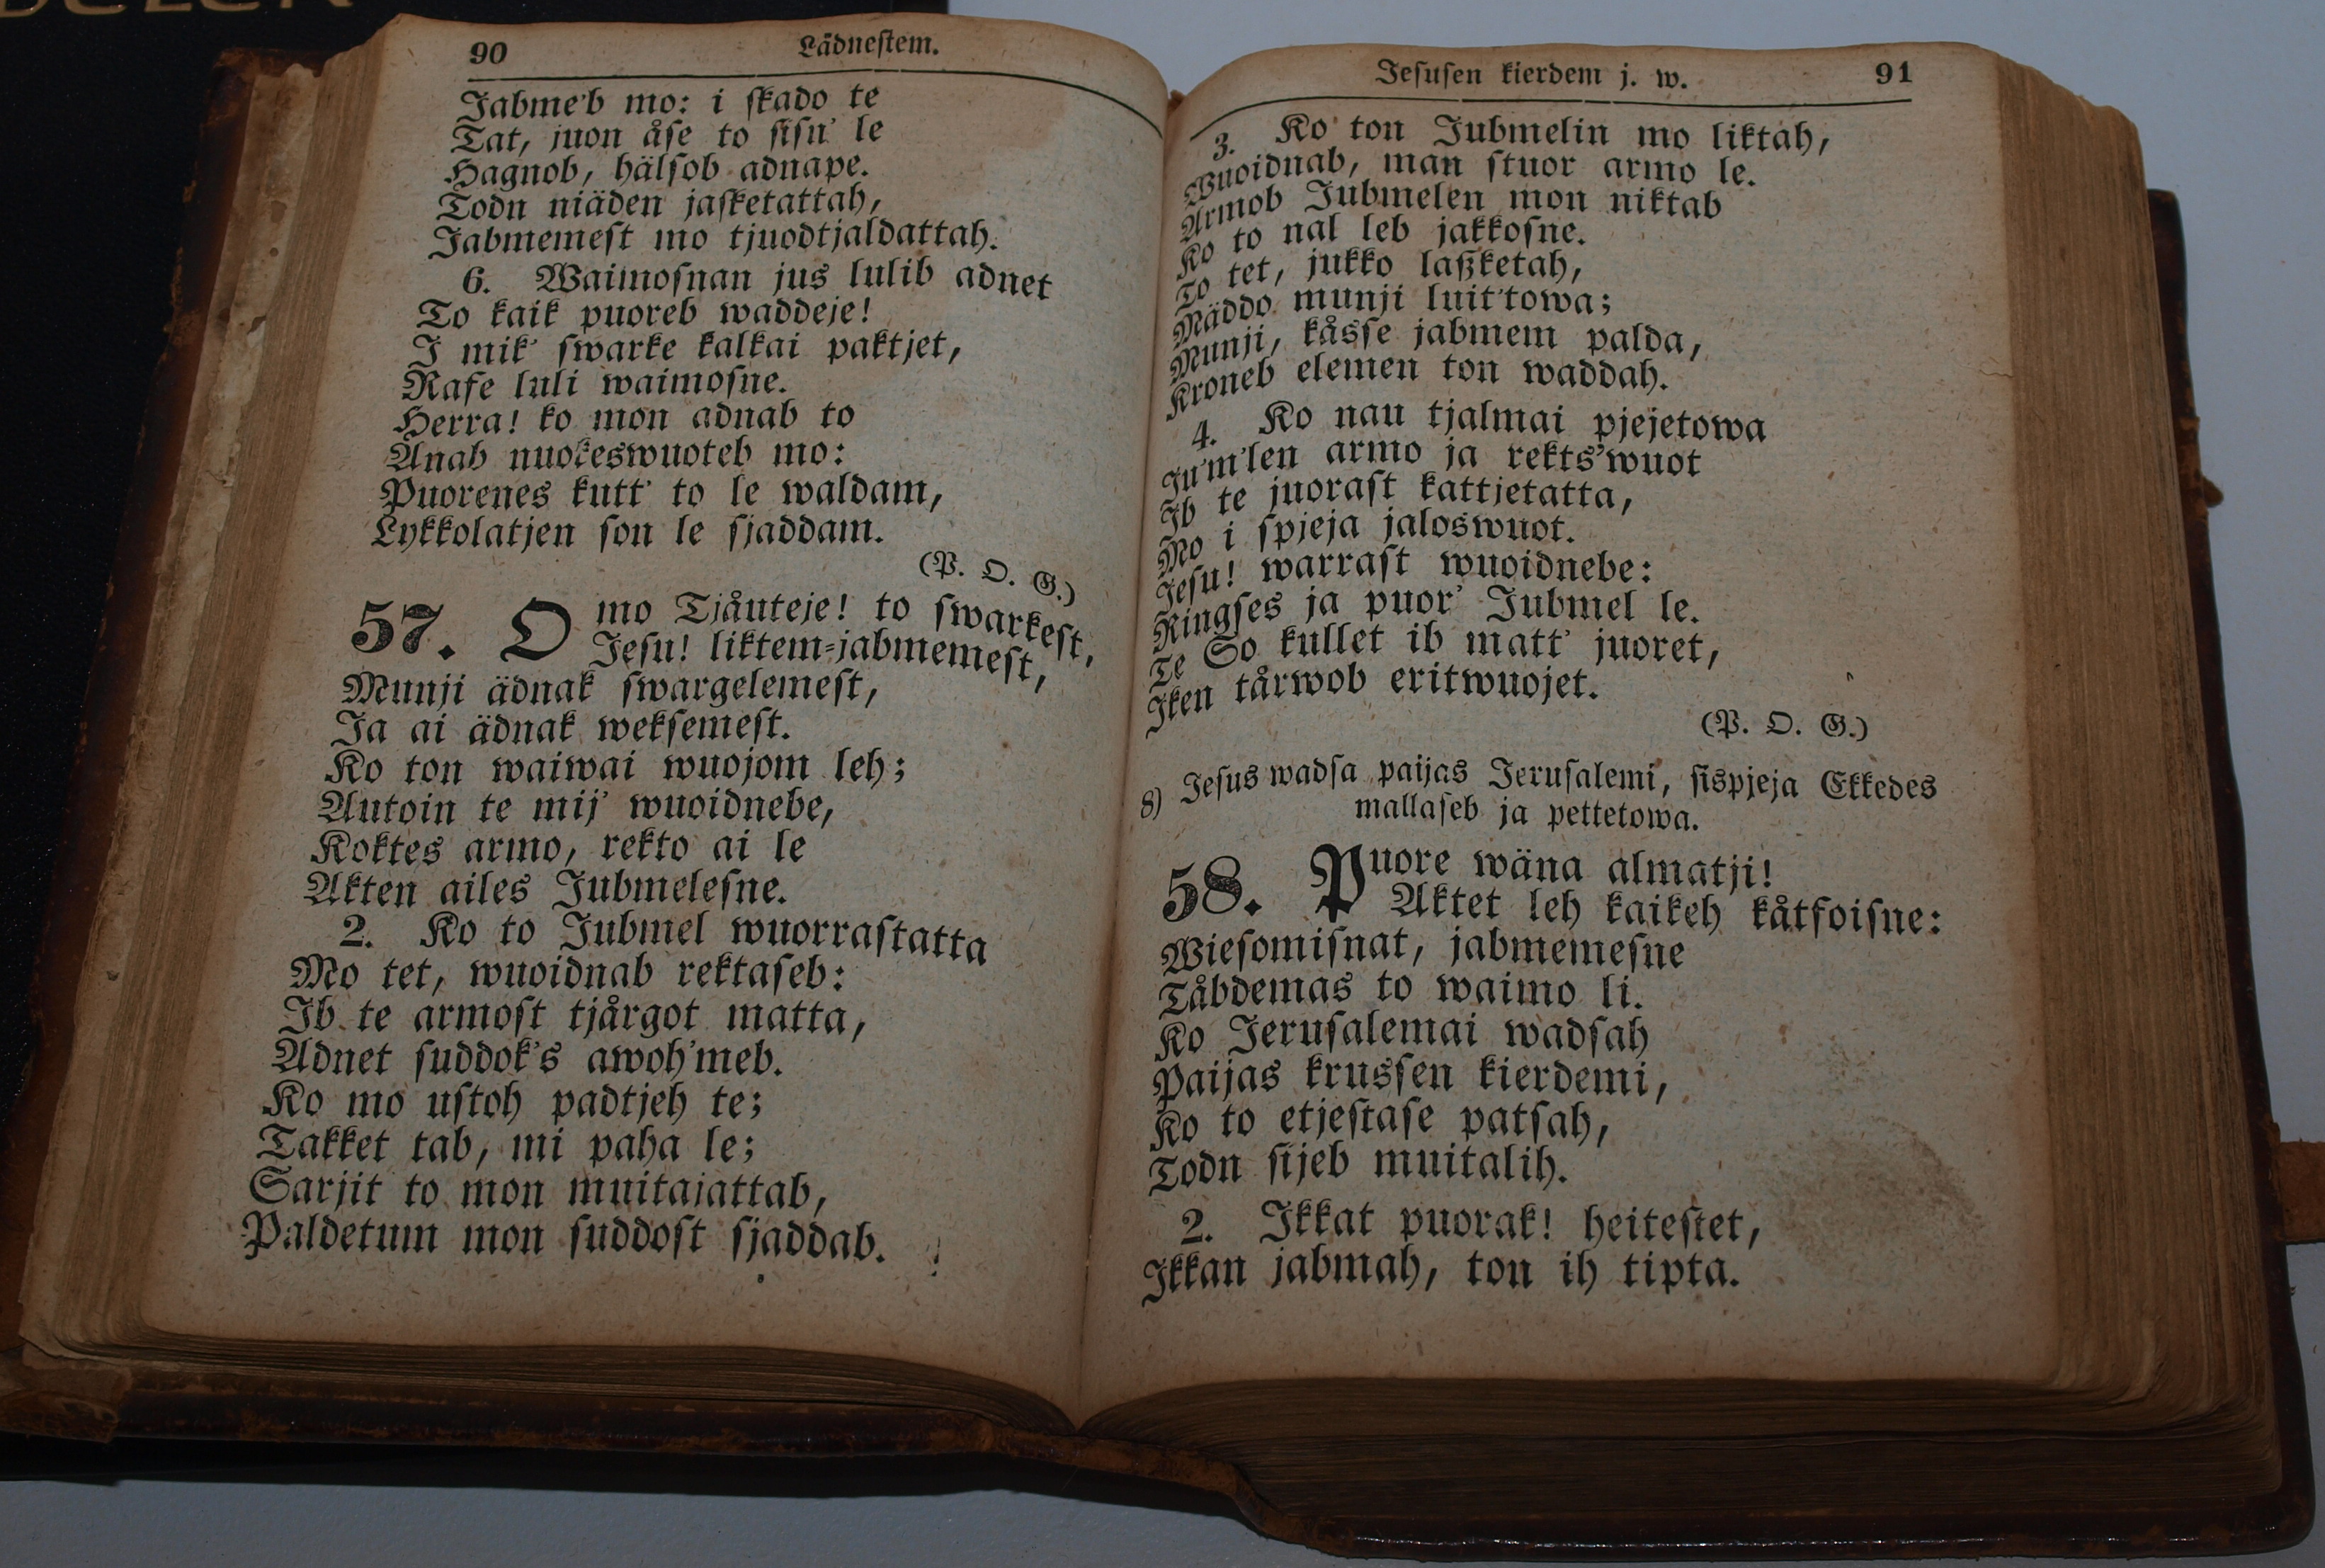 90 Lädnestem.
Jabme'b mo: i skado te
Tat, juon åse to sisn' le
Hagnob, hälsob adnape.
Todn niäden jasketattah,
Jabmemest mo tjuodtjaldattah.
6. Waimosnan jus lulib adnet
To kaik puoreb waddeje!
I mik' swarke kalkai paktjet,
Rafe luli waimosne.
Herra! ko mon adnab to
Anab nuokeswuoteb mo:
Puorenes kutt' to le waldam,
Lykkolatjen son le sjaddam.
(P. O. G.)
57. O mo Tjåuteje! to swarkest,
Jesu! liktem-jabmemest,
Munji ädnak swargelemest,
Ja ai ädnak weksemest.
Ko ton waiwai wuojom leh;
Autoin te mij' wuoidnebe,
Koktes armo, rekto ai le
Akten ailes Jubmelesne.
2. Ko to Jubmel wuorrastatta
Mo tet, wuoidnab rektaseb:
Ib te armost tjårgot matta,
Adnet suddok's awoh'meb.
Ko mo ustoh padtjeh te;
Takket tab, mi paha le;
Sarjit to mon muitajattab,
Paldetum mon suddost sjaddab.
Jesusen kierdem j. w. 91
3. Ko ton Jubmelin mo liktah,
Wuoidnab, man stuor armo le.
Armob Jubmelen mon niktab
Ko to nal leb jakkosne.
To tet, jukko laßketah,
Mäddo munji luit'towa;
Munji, kåsse jabmem palda,
Kroneb elemen ton waddah.
4. Ko nau tjalmai pjejetowa
Ju'm'len armo ja rekts'wuot
Ib te juorast kattjetatta,
Mo i spjeja jaloswuot.
Jesu! warrast wuoidnebe:
Ringses ja puor' Jubmel le.
Te So kullet ib matt' juoret,
Iken tårwob eritwuojet.
(P. O. G.)
8) Jesus wadsa paijas Jerusalemi, sispjeja Ekkedes
mallaseb ja pettetowa.
58. Puore wäna almatji!
Aktet leh kaikeh kåtfoisne:
Wiesomisnat, jabmemesne
Tåbdemas to waimo li.
Ko Jerusalemai wadsah
Paijas krussen kierdemi,
Ko to etjestase patsah,
Todn sijeb muitalih.
2. Ikkat puorak! heitestet,
Ikkan jabmah, ton ih tipta.